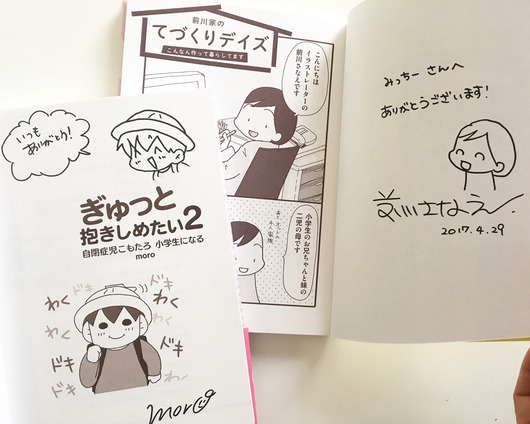 いつも
ありがとり!
ぎゅっと
抱きしめたい2
自閉症児こもたろ 小学生になる
moro
わく
わく
ドキ
ドキ
わく
わく
ドキ
ドキ
moro
前川家の
てづくりデイズ
こんなん作って暮らしてます
こんにちは
イラストレーターの
前川さなえです
小学生のお兄ちゃんと妹の
二児の母です
みっちー さんへ
ありがとうございます!
前川さなえ
2017.4.29